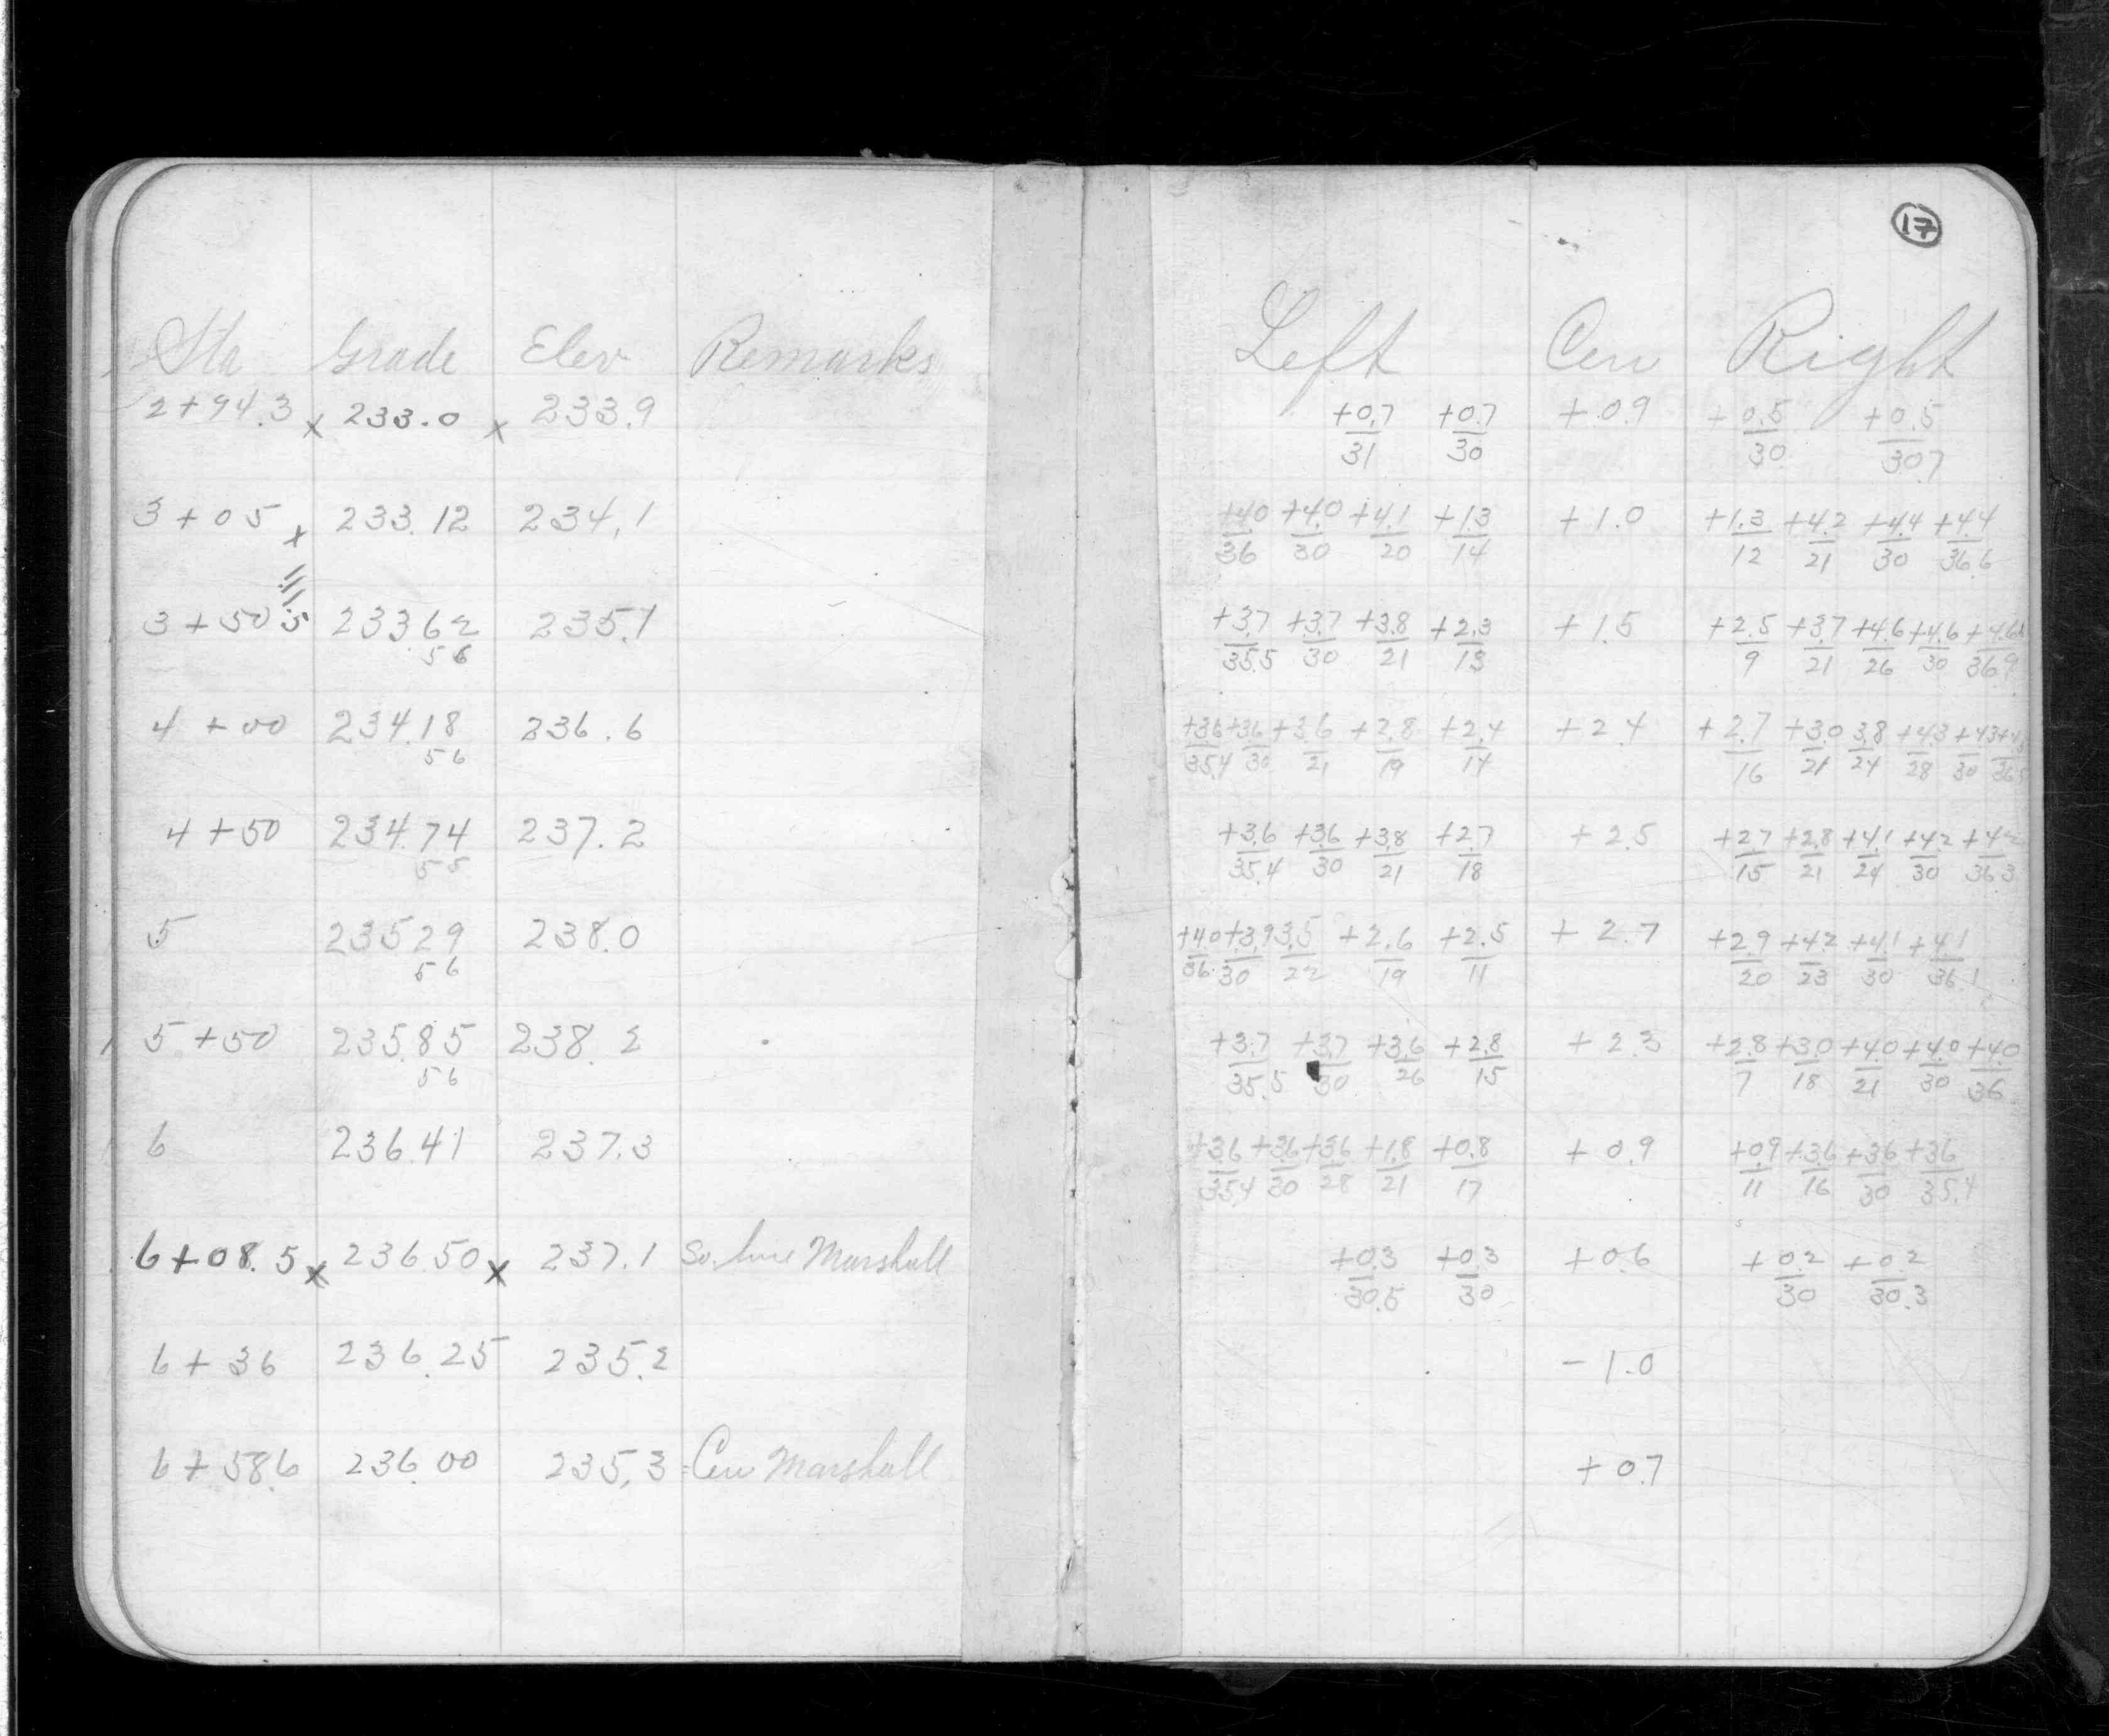 17
Sta Grade Elev Remarks
Left Cen Right
2+94.3 x 233.0 x 233.9
+0.7 +0.7 +0.9 +0.5 +0.5
31 30 30 30.7
3+05 x 233.12 234.1
+4.0 +4.0 +4.1 +1.3 +1.0 +1.3 +4.2 +4.4 +4.4
36 30 20 14 12 21 30 36.6
3+50 5 233.62 235.1
56
+3.7 +3.7 +3.8 +2.3 +1.5 +2.5 +3.7 +4.6 +4.6 +4.6
35.5 30 21 13 9 21 26 30 36.9
4+00 234.18 236.6
56
+3.6 +3.6 +3.6 +2.8 +2.4 +2.4 +2.7 +3.0 3.8 +4.3 +4.3
35.4 30 21 19 14 16 21 24 28 30 36.5
4+50 234.74 237.2
55
+3.6 +3.6 +3.8 +2.7 +2.5 +2.7 +2.8 +4.1 +4.2 +4.2
35.4 30 21 18 15 21 24 30 36.3
5 235.29 238.0
56
+4.0 +3.9 3.5 +2.6 +2.5 +2.7 +2.9 +4.2 +4.1 +4.1
36 30 22 19 11 20 23 30 36.1
5+50 235.85 238.2
56
+3.7 +3.7 +3.6 +2.8 +2.3 +2.8 +3.0 +4.0 +4.0 +4.0
35.5 30 26 15 7 18 21 30 36
6 236.41 237.3
+3.6 +3.6 +3.6 +1.8 +0.8 +0.9 +0.9 +3.6 +3.6 +3.6
35.4 30 28 21 17 11 16 30 35.4
6+08.5 x 236.50 x 237.1 So. line Marshall
+0.3 +0.3 +0.6 +0.2 +0.2
30.5 30 30 30.3
6+36 236.25 235.2
-1.0
6+58.6 236.00 235.3 = Cen Marshall
+0.7